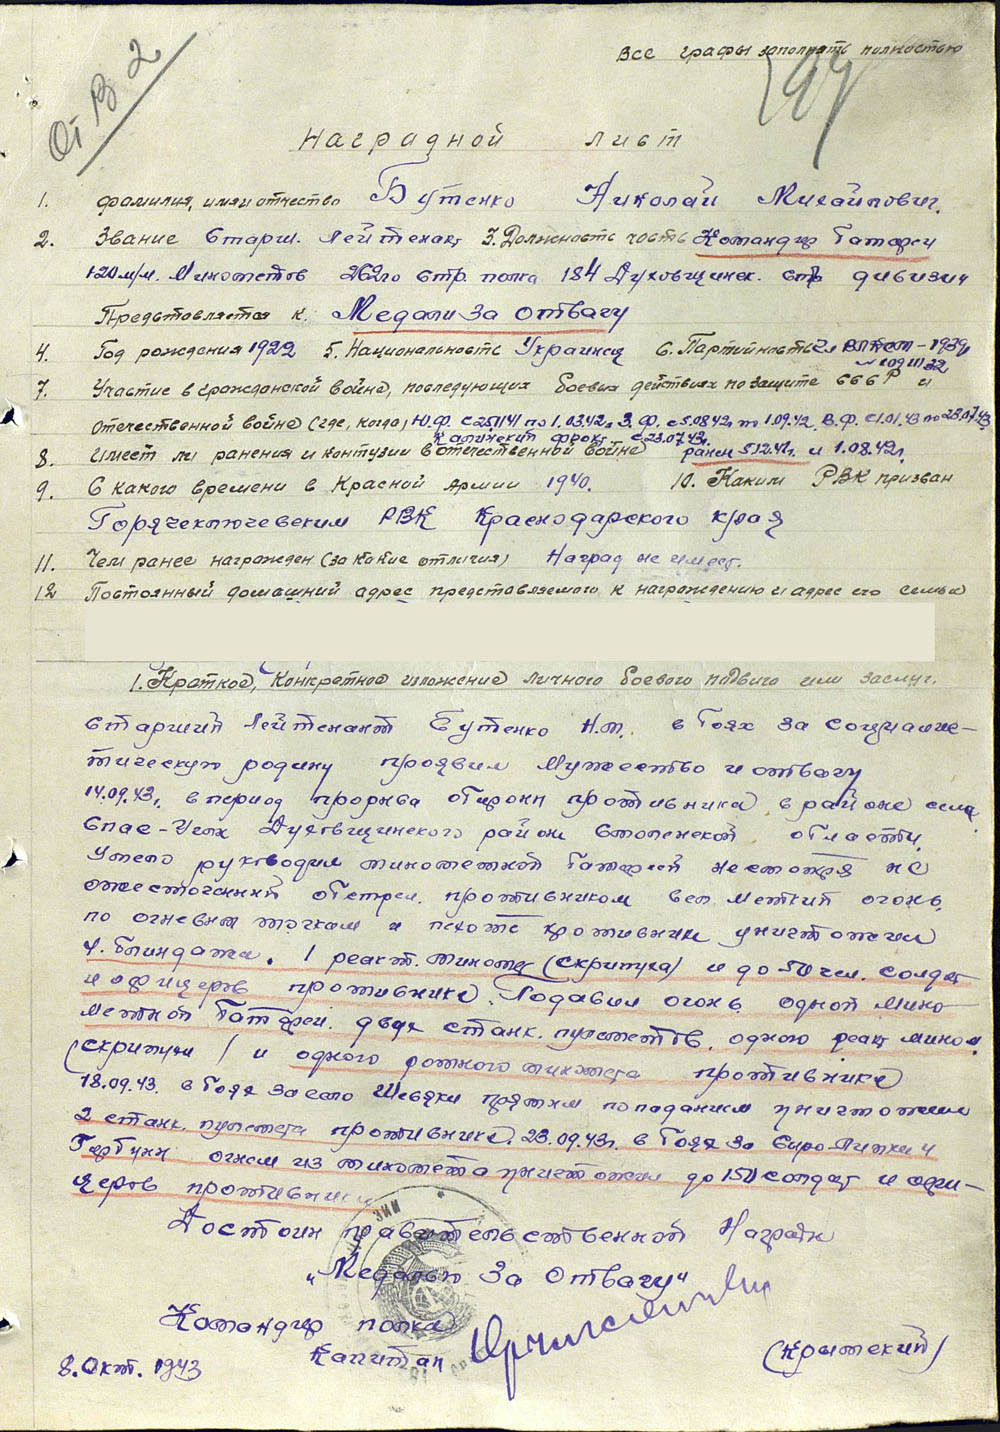 Все графы заполнять полностью
От В 2
Наградной лист
1. фамилия, имя и отчество Бутенко Николай Михайлович.
2. Звание Старш. Лейтенант 3. Должность часть Командир батареи
120 м/м. Минометов 262го стр. полка 184 Духовщинск. стр дивизии
Представляется к. Медали За отвагу
4. Год рождения 1922 5. Национальность Украинец 6. Партийность 1939г
7. Участие в гражданской войне, последующих боевых действиях по защите СССР и
отечественной войне (где, когда) Ю.Ф. с 25.11.41 по 1.03.42г З.Ф. с 5.08.42г по 1.09.42. В.Ф. с 1.01.43 по 23.07.43
Калининский фронт с 23.07.43г.
8. Имеет ли ранения и контузии в отечественной войне ранен 5.12.41г. и 1.08.42г.
9. С какого времени в Красной Армии 1940. 10. Каким РВК призван
Горячеключевским РВК Краснодарского края
11. Чем ранее награжден (за какие отличия) Наград не имеет.
12 Постоянный домашний адрес представляемого к награждению и адрес его семьи
1. Краткое, Конкретное изложение личного боевого подвига или заслуг.
Старший Лейтенант Бутенко Н.М. в боях за социалис-
тическую родину проявил мужество и отвагу
14.09.43г. в период прорыва обороны противника, в районе села
Спас-Углы Духовщинского района Смоленской области.
Умело руководил минометной батареей несмотря на
ожесточенный обстрел противником вел меткий огонь,
по огневым точкам и пехоте противника уничтожил
4. блиндажа. 1 реакт. миномет (скрипуха) и до 50 чел. солдат
и офицеров противника. Подавил огонь одной мино-
метной батареи. двух станк. пулеметов. одного реакт мином.
(скрипухи) и одного ротного миномета противника
18.09.43. в боях за село Шевяки прямым попаданием уничтожил
2 станк. пулемета противника. 23.09.43г. в боях за Липки и
Горбуны огнем из миномета уничтожил до 150 солдат и офи-
церов противника
Достоин правительственной Награды
„Медалью За Отвагу"
Командир полка
Капитан (Крымский)
8. Окт. 1943